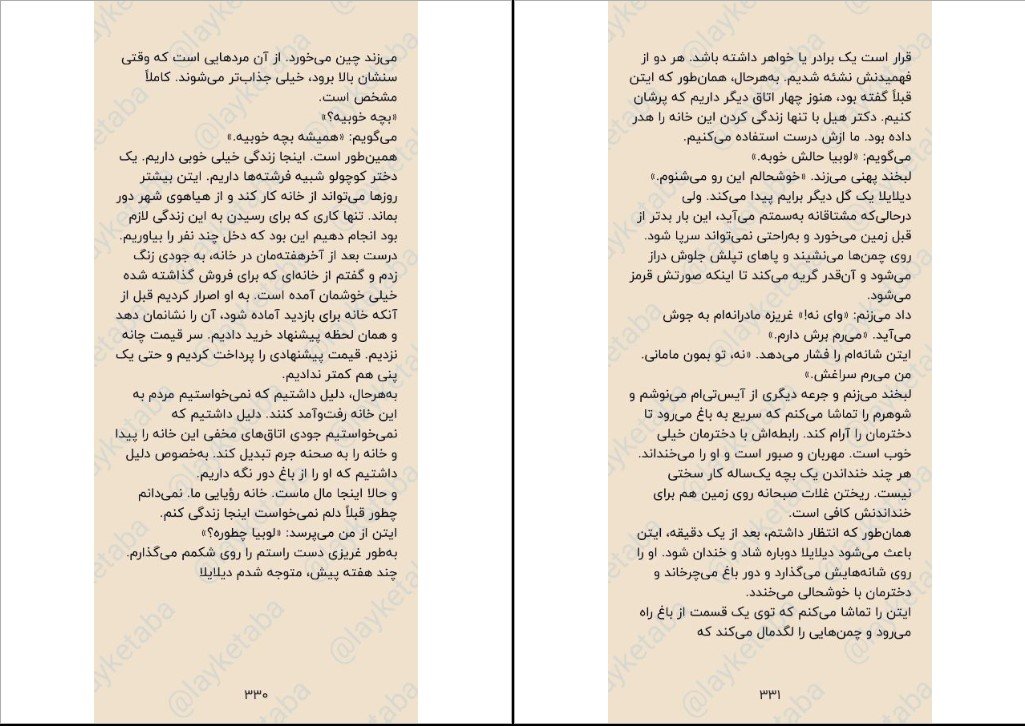 می‌زند چین می‌خورد. از آن مردهایی است که وقتی
سنشان بالا برود، خیلی جذاب‌تر می‌شوند. کاملاً
مشخص است.
«بچه خوبیه؟»
می‌گویم: «همیشه بچه خوبیه.»
همین‌طور است. اینجا زندگی خیلی خوبی داریم. یک
دختر کوچولو شبیه فرشته‌ها داریم. ایتن بیشتر
روزها می‌تواند از خانه کار کند و از هیاهوی شهر دور
بماند. تنها کاری که برای رسیدن به این زندگی لازم
بود انجام دهیم این بود که دخل چند نفر را بیاوریم.
درست بعد از آخرهفته‌مان در خانه، به جودی زنگ
زدم و گفتم از خانه‌ای که برای فروش گذاشته شده
خیلی خوشمان آمده است. به او اصرار کردیم قبل از
آنکه خانه برای بازدید آماده شود، آن را نشانمان دهد
و همان لحظه پیشنهاد خرید دادیم. سر قیمت چانه
نزدیم. قیمت پیشنهادی را پرداخت کردیم و حتی یک
پنی هم کمتر ندادیم.
به‌هرحال، دلیل داشتیم که نمی‌خواستیم مردم به
این خانه رفت‌وآمد کنند. دلیل داشتیم که
نمی‌خواستیم جودی اتاق‌های مخفی این خانه را پیدا
و خانه را به صحنه جرم تبدیل کند. به‌خصوص دلیل
داشتیم که او را از باغ دور نگه داریم.
و حالا اینجا مال ماست. خانه رؤیایی ما. نمی‌دانم
چطور قبلاً دلم نمی‌خواست اینجا زندگی کنم.
ایتن از من می‌پرسد: «لوبیا چطوره؟»
به‌طور غریزی دست راستم را روی شکمم می‌گذارم.
چند هفته پیش، متوجه شدم دیلایلا
۳۳۰
قرار است یک برادر یا خواهر داشته باشد. هر دو از
فهمیدنش نشئه شدیم. به‌هرحال، همان‌طور که ایتن
قبلاً گفته بود، هنوز چهار اتاق دیگر داریم که پرشان
کنیم. دکتر هیل با تنها زندگی کردن این خانه را هدر
داده بود. ما ازش درست استفاده می‌کنیم.
می‌گویم: «لوبیا حالش خوبه.»
لبخند پهنی می‌زند. «خوشحالم این رو می‌شنوم.»
دیلایلا یک گل دیگر برایم پیدا می‌کند. ولی
درحالی‌که مشتاقانه به‌سمتم می‌آید، این بار بدتر از
قبل زمین می‌خورد و به‌راحتی نمی‌تواند سرپا شود.
روی چمن‌ها می‌نشیند و پاهای تپلش جلوش دراز
می‌شود و آن‌قدر گریه می‌کند تا اینکه صورتش قرمز
می‌شود.
داد می‌زنم: «وای نه!» غریزه مادرانه‌ام به جوش
می‌آید. «می‌رم برش دارم.»
ایتن شانه‌ام را فشار می‌دهد. «نه، تو بمون مامانی.
من می‌رم سراغش.»
لبخند می‌زنم و جرعه دیگری از آیس‌تی‌ام می‌نوشم و
شوهرم را تماشا می‌کنم که سریع به باغ می‌رود تا
دخترمان را آرام کند. رابطه‌اش با دخترمان خیلی
خوب است. مهربان و صبور است و او را می‌خنداند.
هر چند خنداندن یک بچه یک‌ساله کار سختی
نیست. ریختن غلات صبحانه روی زمین هم برای
خنداندنش کافی است.
همان‌طور که انتظار داشتم، بعد از یک دقیقه، ایتن
باعث می‌شود دیلایلا دوباره شاد و خندان شود. او را
روی شانه‌هایش می‌گذارد و دور باغ می‌چرخاند و
دخترمان با خوشحالی می‌خندد.
ایتن را تماشا می‌کنم که توی یک قسمت از باغ راه
می‌رود و چمن‌هایی را لگدمال می‌کند که
۳۳۱
@layketaba